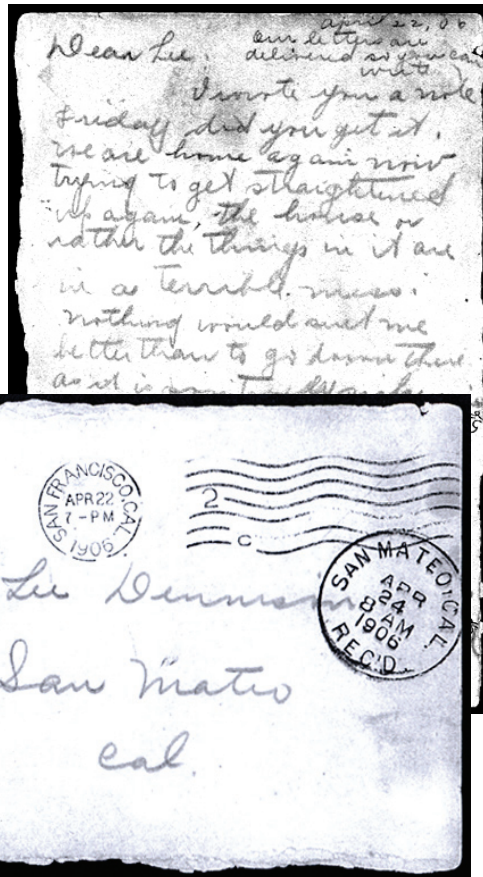 april 22, 06
our letters are
delivered so you can
write
Dear Lee.
I wrote you a note
Friday did you get it.
we are home again now
trying to get straightened
up again, the house or
rather the things in it are
in a terrible mess.
nothing would suit me
better than to go down there
as it is
SAN FRANCISCO, CAL.
APR 22
7-PM
1906
2
C
SAN MATEO, CAL.
APR
24
8 AM
1906
REC'D.
Lee
San Mateo
Cal.